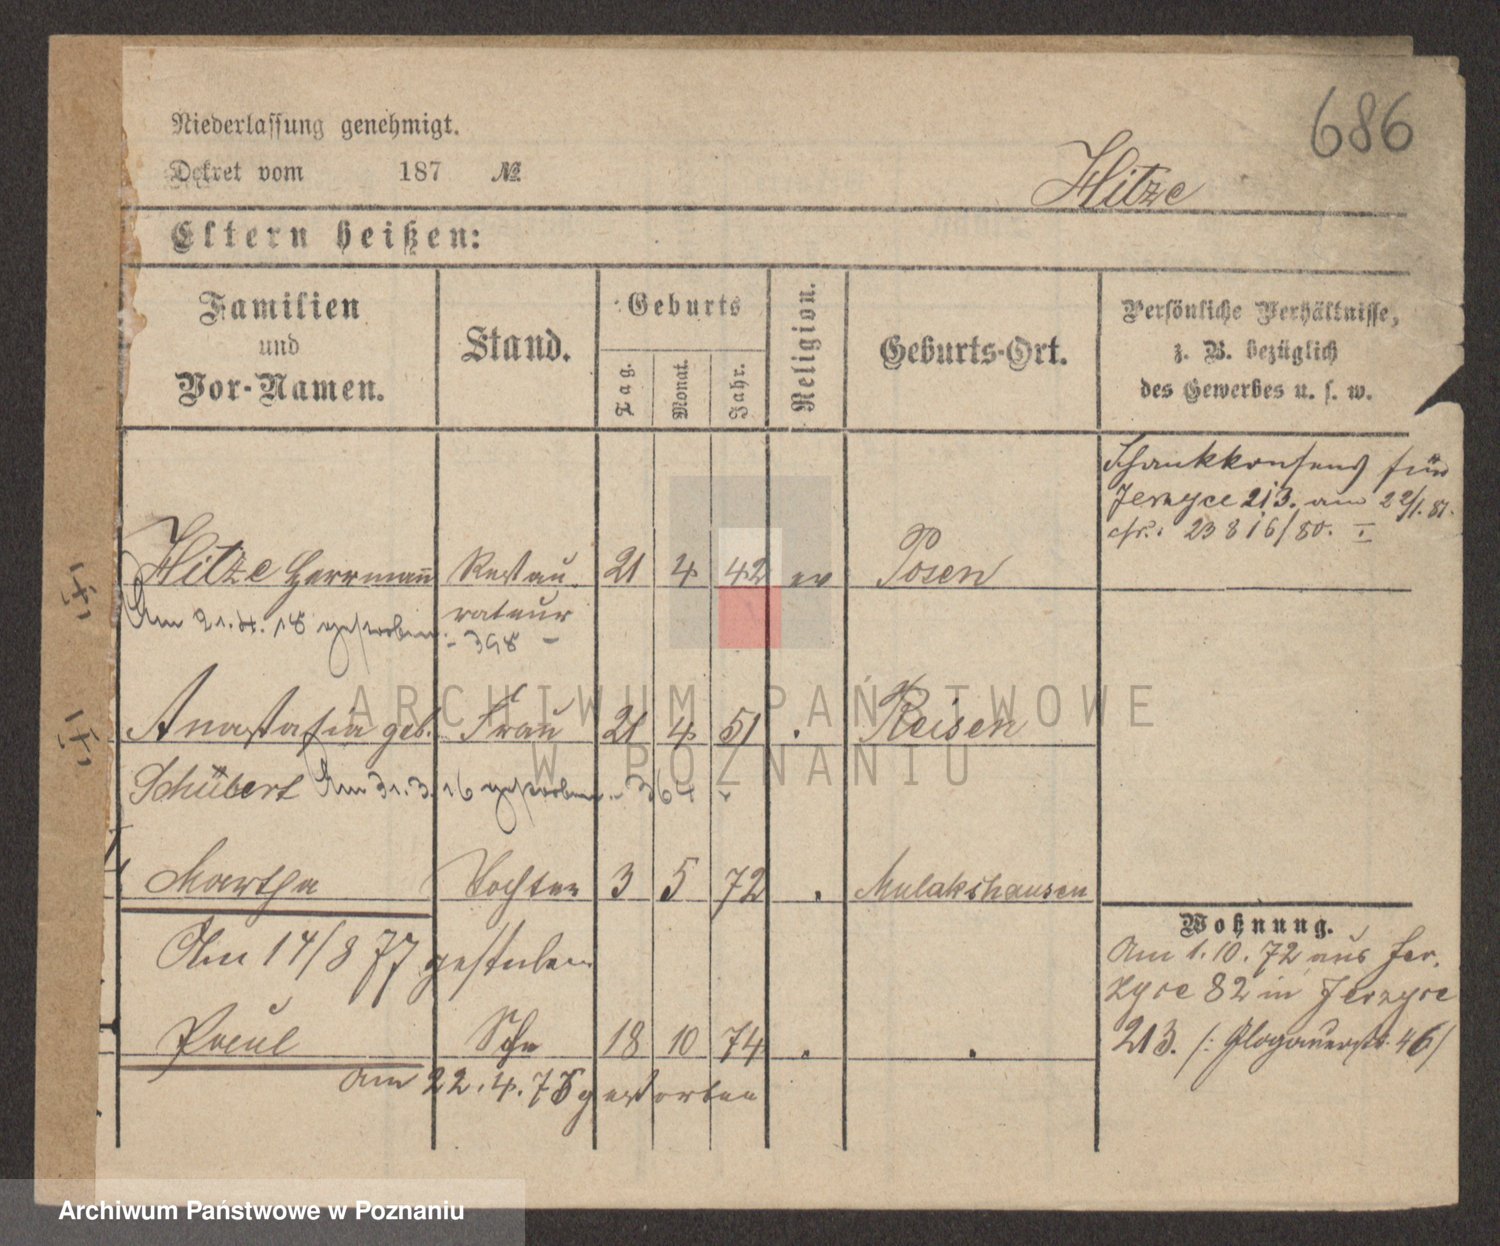 686
Niederlassung genehmigt.
Dekret vom 187 №
Hitze
Eltern heißen:
Familien und Vor-Namen.
Stand.
Geburts
Tag.
Monat.
Jahr.
Religion.
Geburts-Ort.
Persönliche Verhältnisse, z. B. bezüglich des Gewerbes u. s. w.
Schankkonsens für
Jerzyce 213. am 22/1. 81.
cfr. 23816/80. I
Hitze Herrmann Restau- 21 4 42 ev Posen
Am 21.4.18 gestorben rateur
- 398 -
Anastasia geb. Frau 21 4 51 . Reisen
Schubert Am 31.3.16 gestorben - 364 -
Martha Tochter 3 5 72 . Mulakshausen
Am 14/8 77 gestorben
Paul Sohn 18 10 74 . .
am 22.4.75 gestorben
Wohnung.
Am 1.10.72 aus Jer-
zyce 82 in Jerzyce
213. /: Glogauerstr. 46/
ARCHIWUM PAŃSTWOWE
W POZNANIU
Archiwum Państwowe w Poznaniu